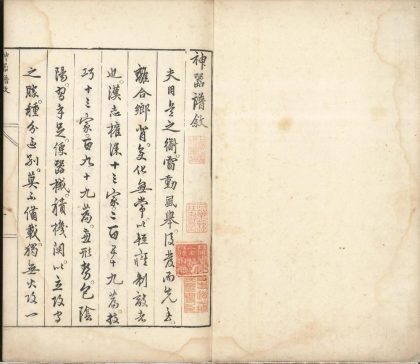 神器譜敘
夫兵之雷動風舉後發而先至
離合鄉背變化無常以輕疾制敵者
也漢志權謀十三家二百五十九篇技
巧十三家百九十九篇兼形勢包陰
陽習手足便器械積機關以立攻守
之勝種分區別莫不備載獨無火攻一
神器譜敘